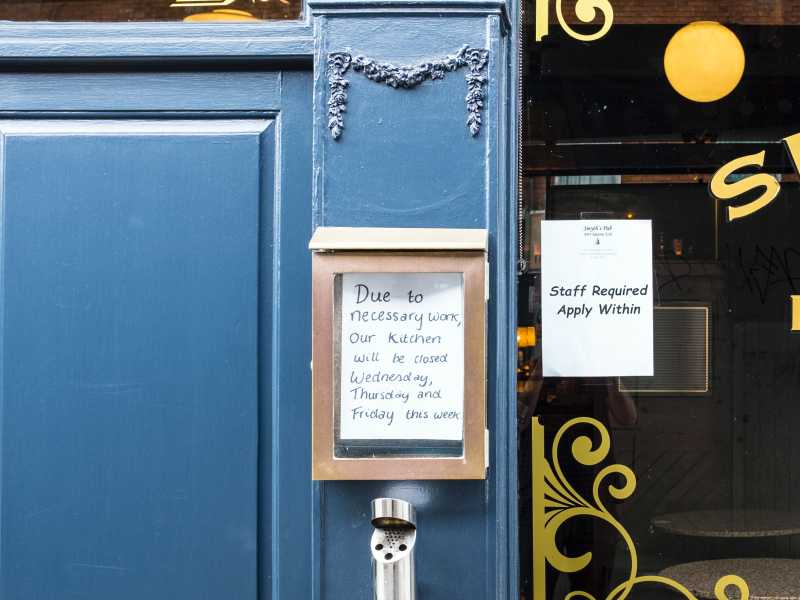 Due to
necessary work,
Our Kitchen
will be closed
Wednesday,
Thursday and
Friday this week
Staff Required
Apply Within
S